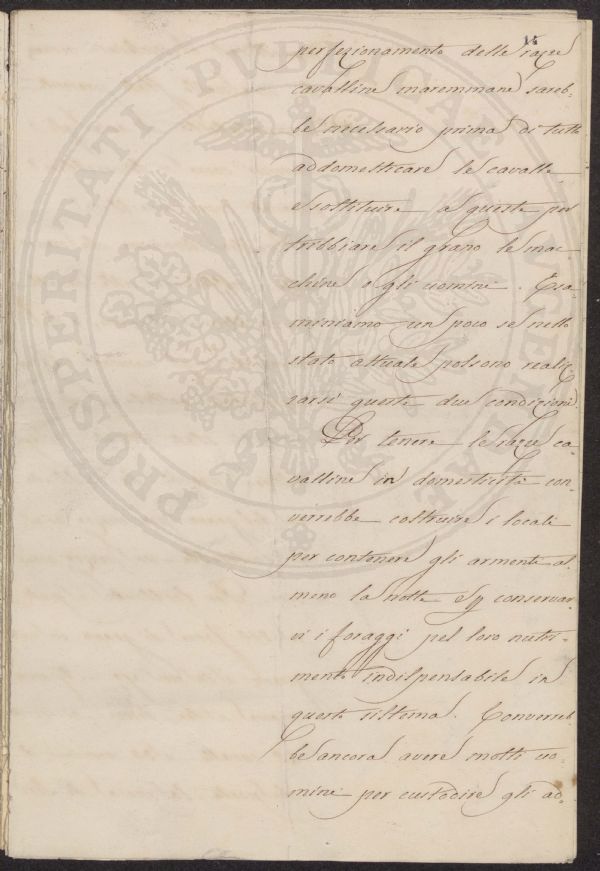 15
perfezionamento delle razze
cavalline maremmane sareb-
be necessario prima di tutto
addomesticare le cavalle,
e sostituire a queste per
tribbiare il grano le mac-
chine o gli uomini. Esa-
miniamo un poco se nello
stato attuale possono realiz-
zarsi queste due condizioni.
Per tenere le razze ca-
valline in domesticità con-
verrebbe costruire i locali
per contenere gli armenti al-
meno la notte e conservar-
vi i foraggi pel loro nutri-
mento indispensabile in
questo sistema. Converreb
be ancora avere molti uo-
mini per custodire gli ac-
PROSPERITATI PVBLICAE AVGENDAE